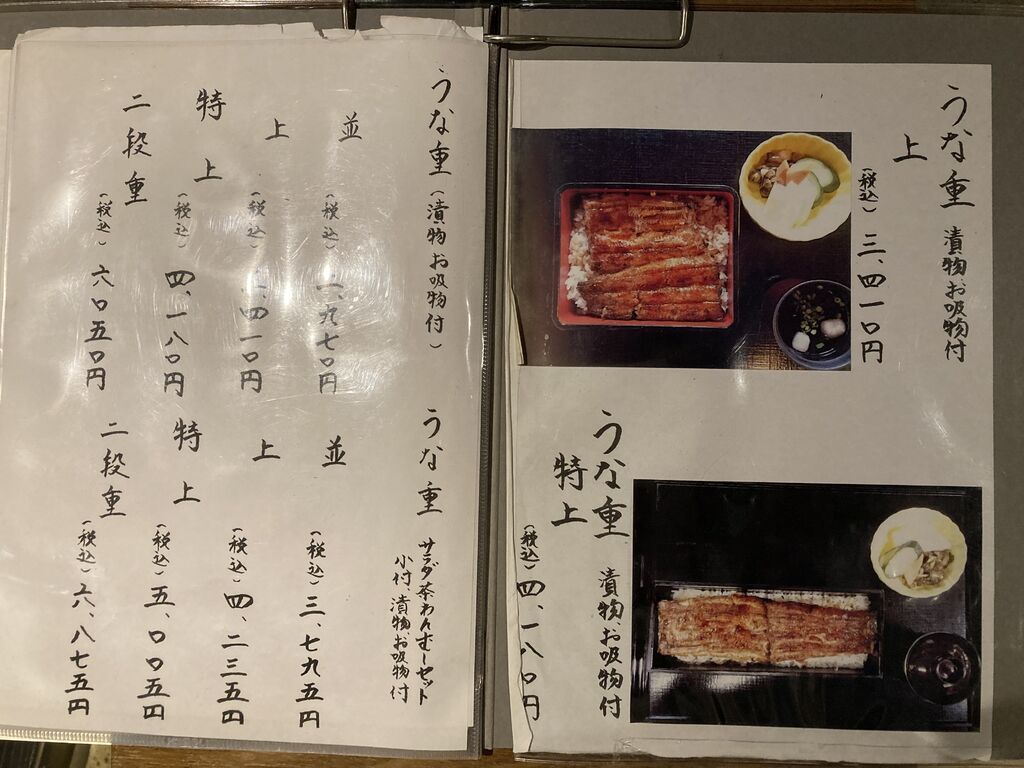 うな重 漬物お吸物付
上
(税込) 三、四一〇円
うな重 漬物お吸物付
特上
(税込) 四、一八〇円
うな重 (漬物お吸物付)
並 (税込) 二、九七〇円
上 (税込) 三、四一〇円
特上 (税込) 四、一八〇円
二段重 (税込) 六〇五〇円
うな重 サラダ茶わんむしセット
小付 漬物お吸物付
並 (税込) 三、七九五円
上 (税込) 四、二三五円
特上 (税込) 五、〇〇五円
二段重 (税込) 六、八七五円